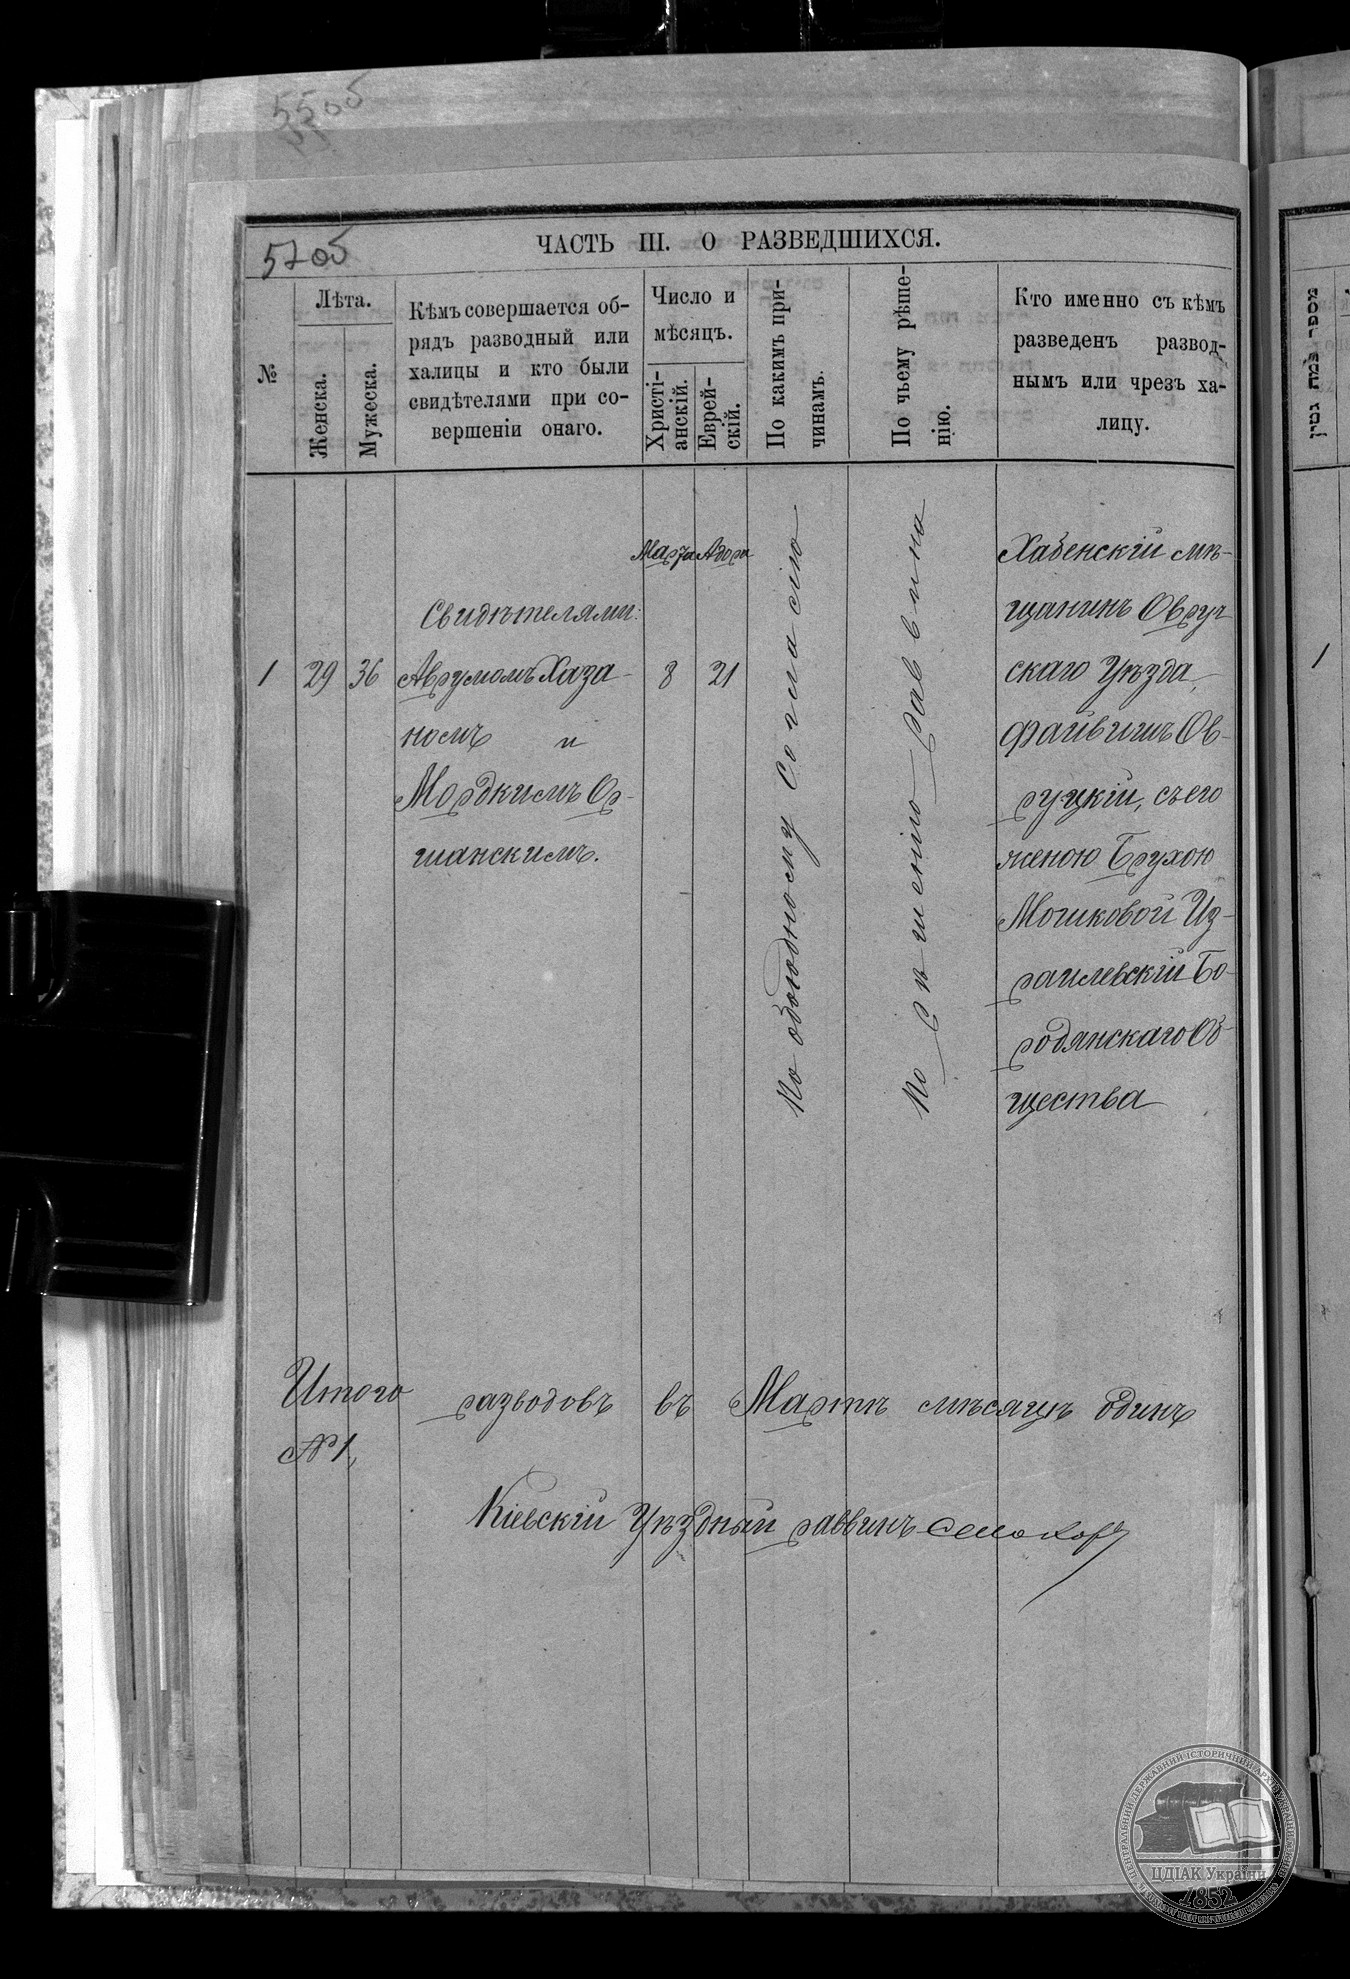 55об
57об
ЧАСТЬ III. О РАЗВЕДШИХСЯ.
№
Лѣта.
Женска.
Мужеска.
Кѣмъ совершается об-
рядъ разводный или
халицы и кто были
свидѣтелями при со-
вершеніи онаго.
Число и
мѣсяцъ.
Христі-
анскій.
Еврей-
скій.
По какимъ при-
чинамъ.
По чьему рѣше-
нію.
Кто именно съ кѣмъ
разведенъ развод-
нымъ или чрезъ ха-
лицу.
1
29
36
Свидѣтелями:
Аврумомъ Хаза-
номъ и
Мордкимъ Ор-
шанскимъ.
Марта
8
Адора
21
По обоюдному согласію
По рѣшенію раввина
Хабенскій мѣ-
щанинъ Овруч
скаго Уѣзда,
Файвишъ Ов-
руцкій, съ его
женою Брухою
Мошковой Из-
раилевскій Бо-
родянскаго Об-
щества
Итого разводовъ въ Мартѣ мѣсяцѣ одинъ
№ 1,
Кіевскій Уѣздный раввинъ
מספר כמה גטין
1
ЦЕНТРАЛЬНИЙ ДЕРЖАВНИЙ ІСТОРИЧНИЙ АРХІВ УКРАЇНИ
ЦДІАК України
1852